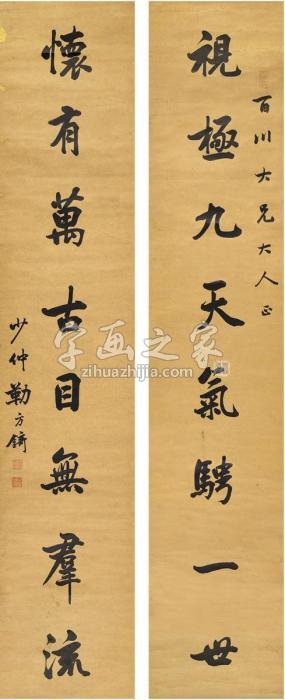 百川大兄大人正
視極九天氣騁一世
懷有萬古目無羣流
少仲勒方錡
字画之家
zihuazhijia.com